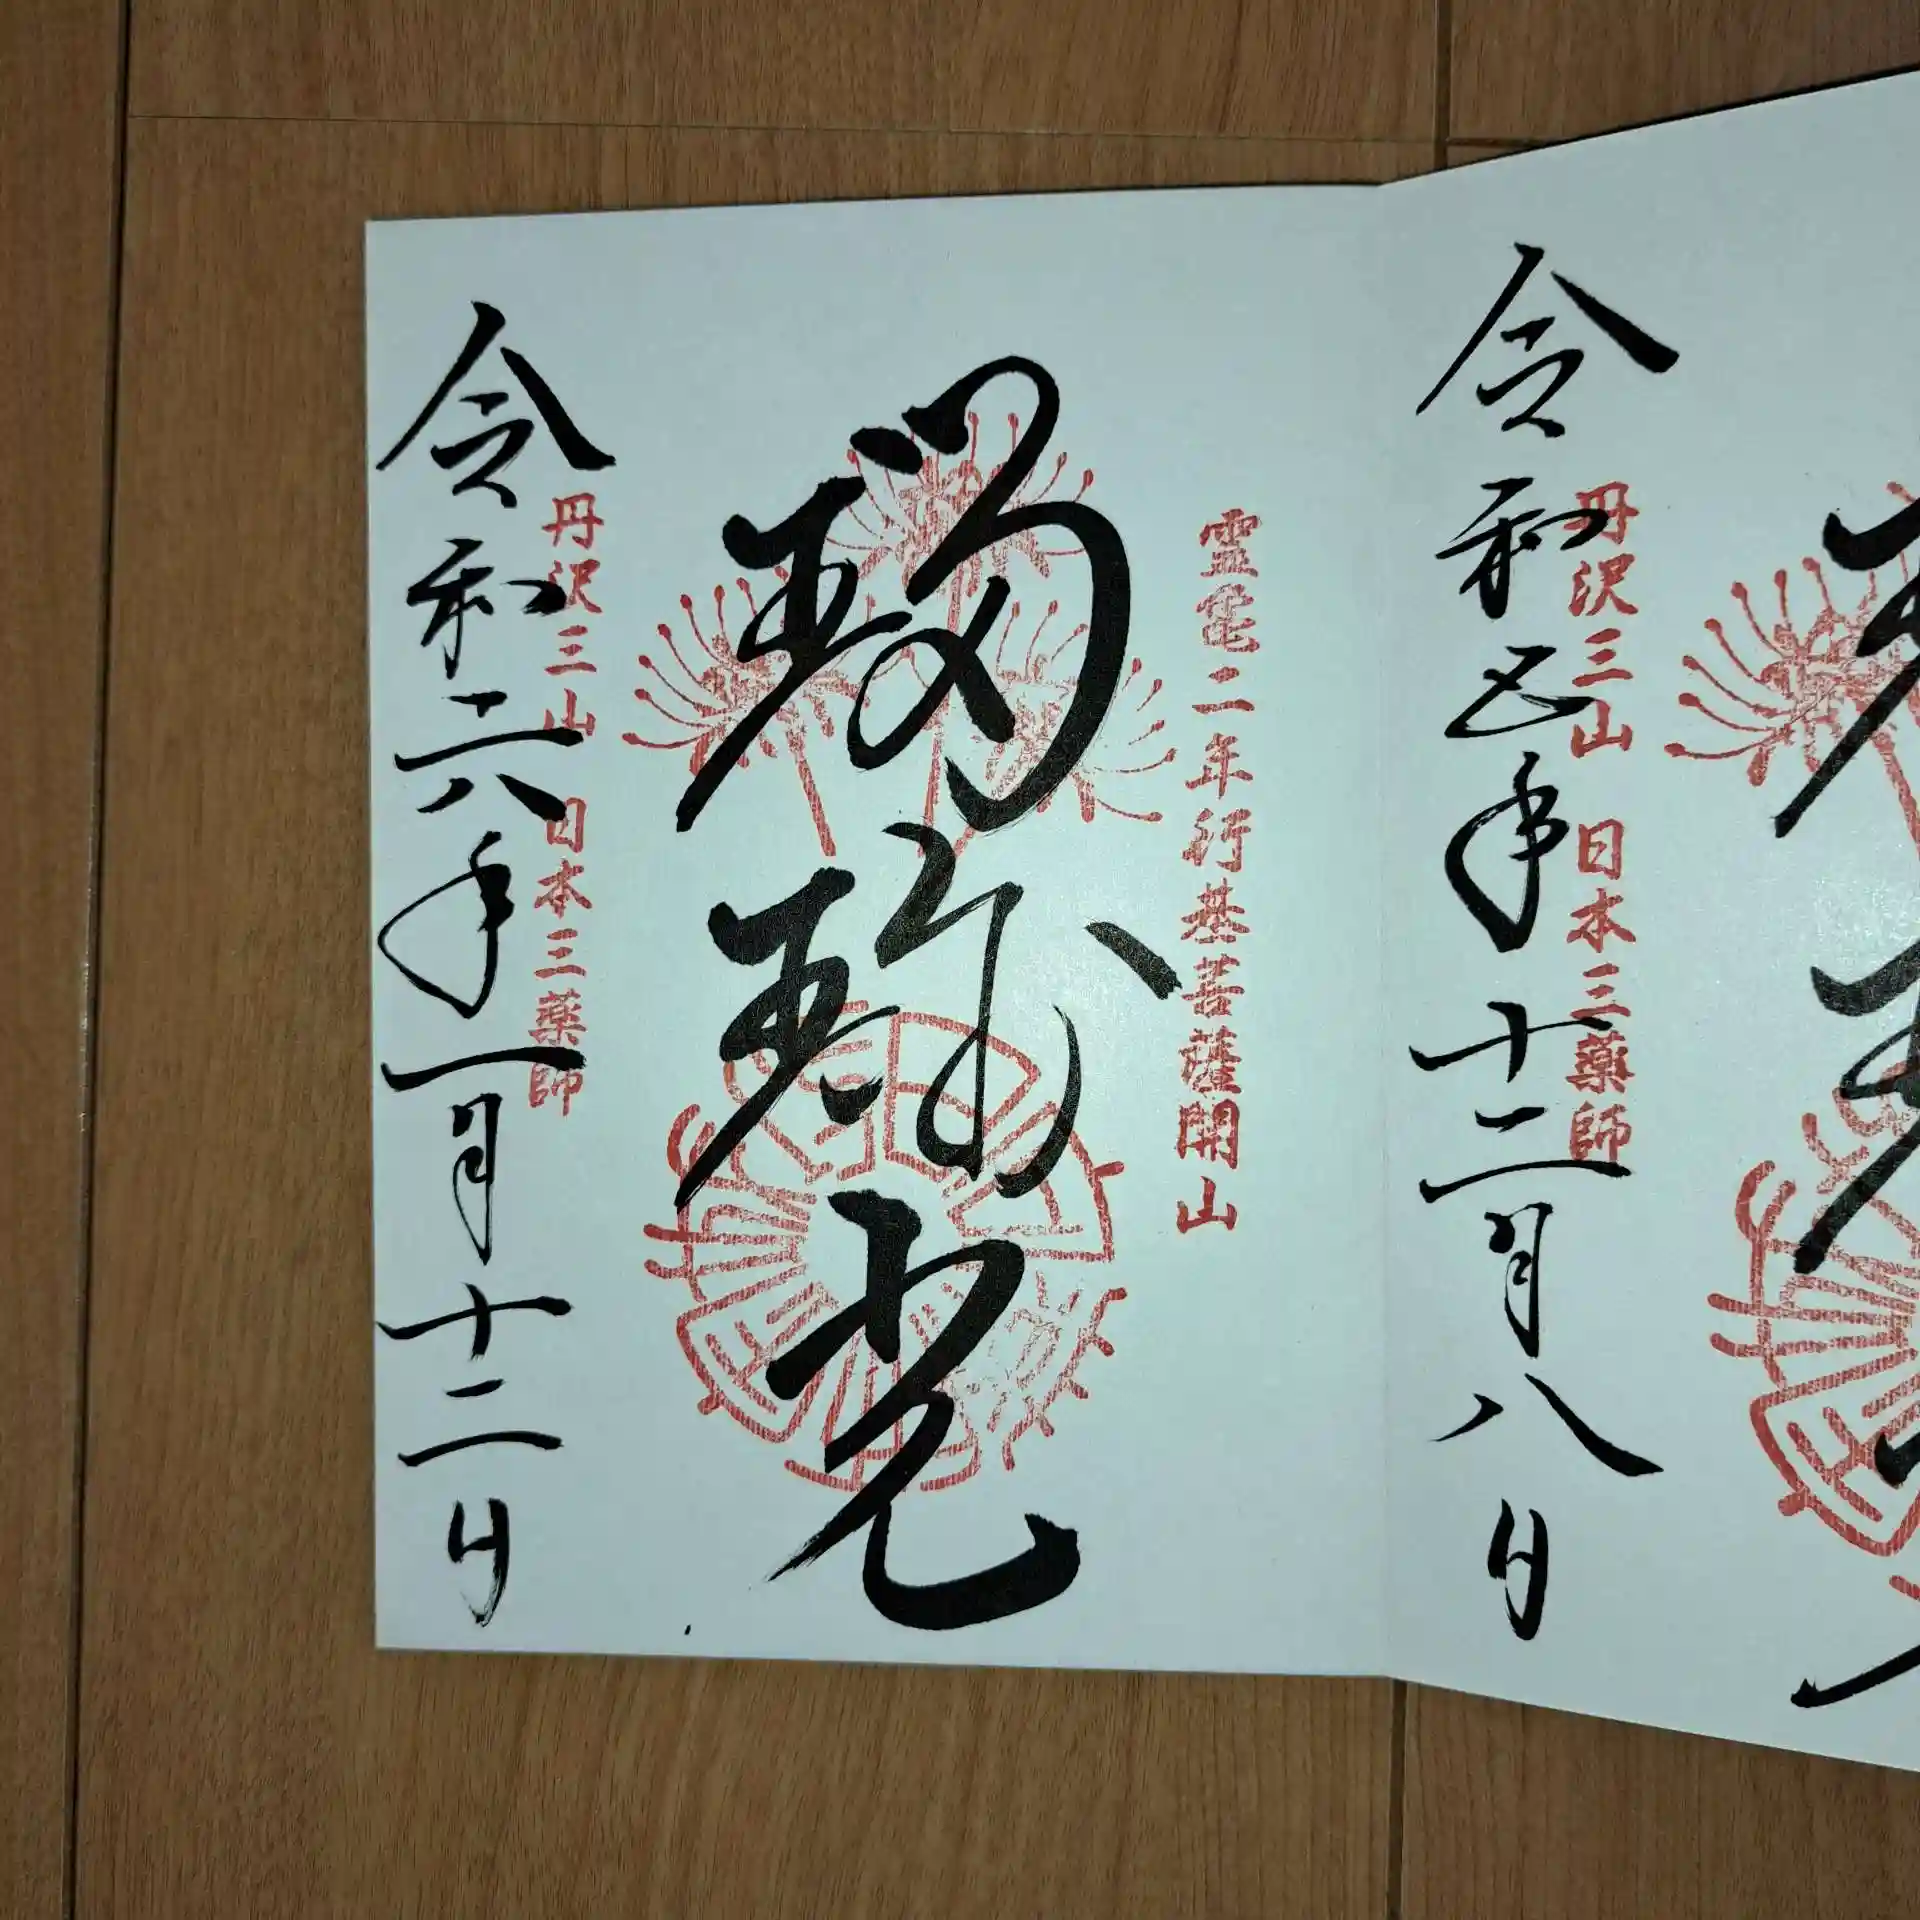 丹沢三山 日本三薬師
令和五年十二月八日
霊亀二年行基菩薩開山
瑠璃光
丹沢三山 日本三薬師
令和六年一月十二日